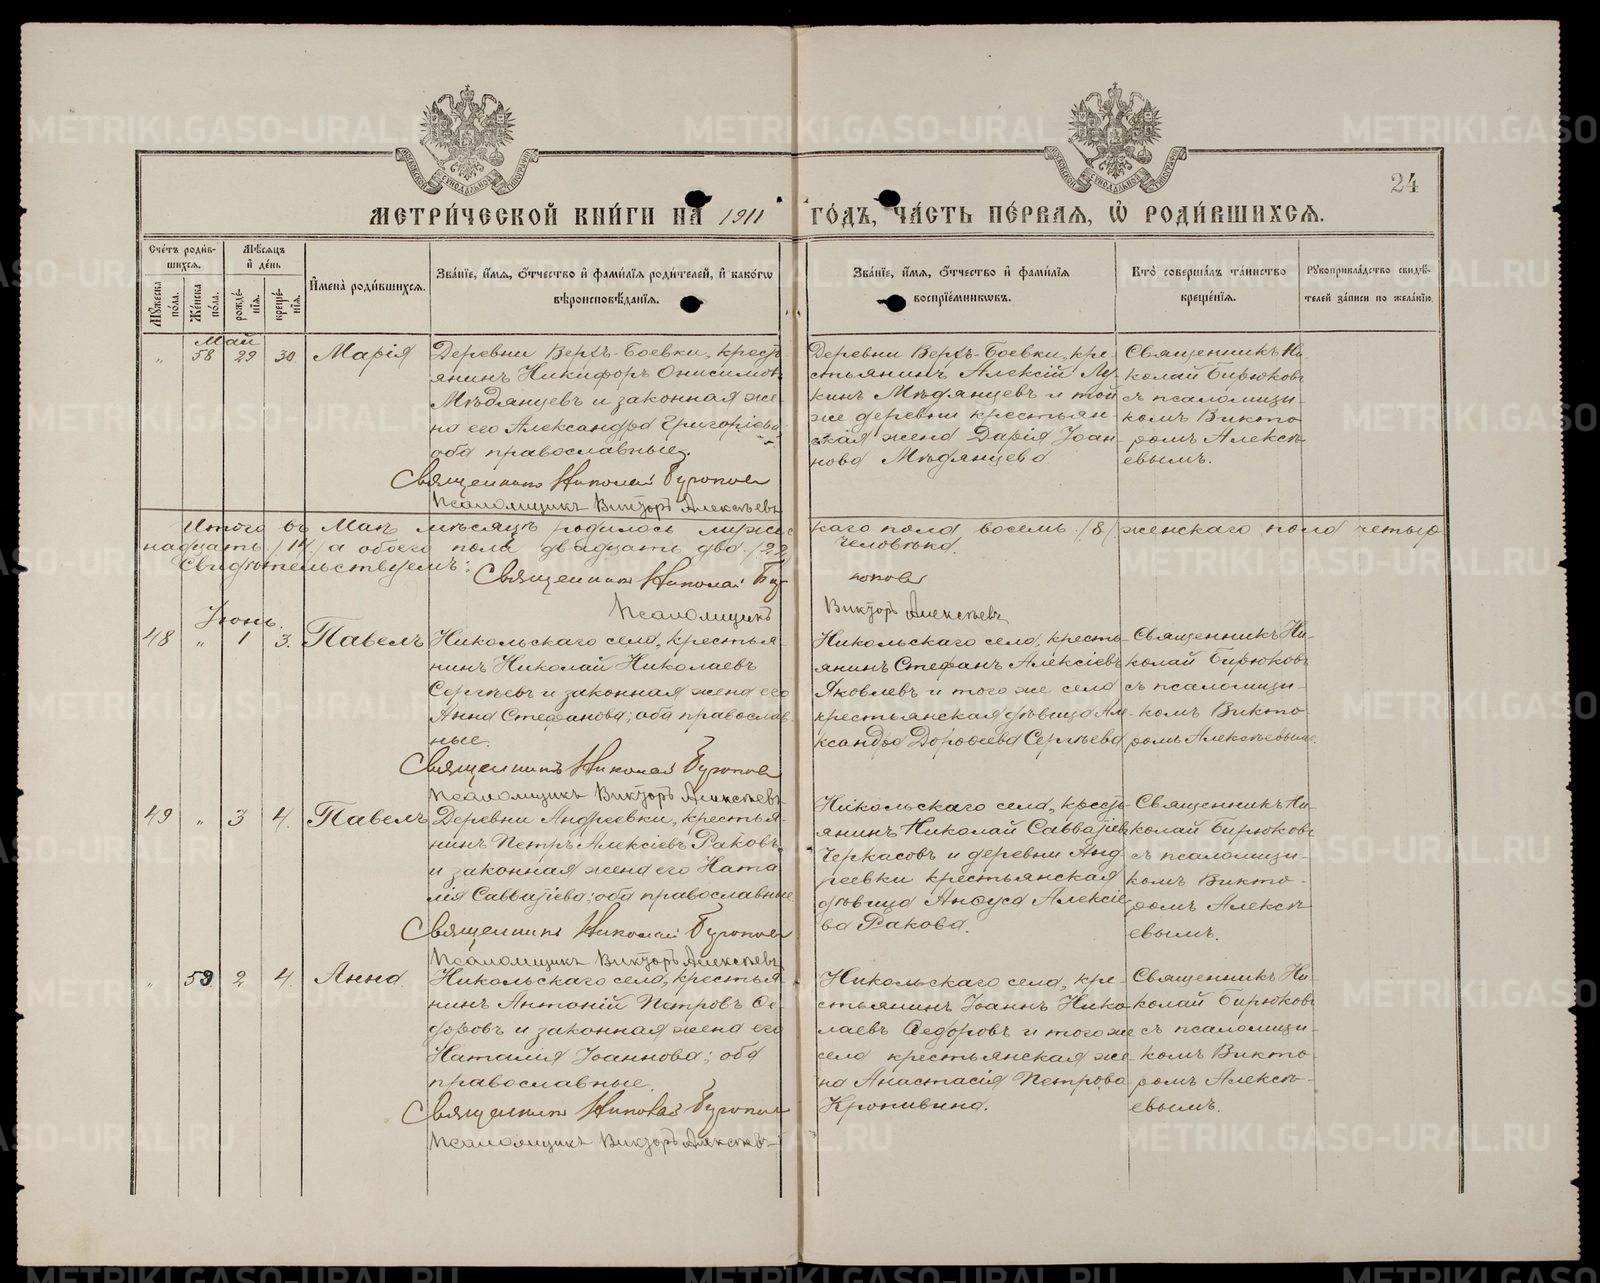 24
МЕТРИ́ЧЕСКОЙ КНИ́ГИ НА 1911 ГО́ДЪ, ЧА́СТЬ ПЕ́РВАЯ, Ѡ҆ РОДИ́ВШИХСЯ.
Сче́тъ роди́вшихся.
Мѣ́сяцъ и҆ де́нь
И҆мена̀ роди́вшихся.
Зва́нїе, и҆́мя, ѻ҆́тчество и҆ фами́лїя роди́телей, и҆ како́гѡ
вѣроисповѣ́данїя.
Зва́нїе, и҆́мя, ѻ҆́тчество и҆ фами́лїя
воспрїе́мникѡвъ.
Кто̀ соверша́лъ та́инство
креще́нїя.
Рꙋкоприкла́дство свидѣ́-
телей за́писи по жела́нїю.
Мꙋ́жеска по́ла.
Же́нска по́ла.
рожде́нїя.
креще́нїя.
Май
„ 58 29 30 Марія
Деревни Верхъ-Боевки, кресть-
янинъ Никифоръ Онисимовъ
Мѣдянцевъ и законная же-
на его Александра Григоріева
оба православные.
Священникъ Николай Бирюков
Псаломщикъ Викторъ Алексѣевъ
Деревни Верхъ-Боевки, кре-
стьянинъ Алексій Лу-
кинъ Мѣдянцевъ и той
же деревни крестьян-
ская жена Дарія Іоан-
нова Мѣдянцева
Священникъ Ни-
колай Бирюковъ
съ псаломщи-
комъ Викто-
ромъ Алексѣ-
евымъ.
Итого въ Маѣ мѣсяцѣ родилось мужес
каго пола восемь /8/ женскаго пола четыр
надцать /14/ а обоего пола двадцать два /22/
человѣка.
Свидѣтельствуемъ:
Священникъ Николай Бирюков
Псаломщикъ Викторъ Алексѣевъ
Іюнь.
48 „ 1 3. Павелъ
Никольскаго села, крестья-
нинъ Николай Николаевъ
Сергѣевъ и законная жена его
Анна Стефанова; оба православ-
ные.
Священникъ Николай Бирюков
Псаломщикъ Викторъ Алексѣевъ
Никольскаго села, кресть-
янинъ Стефанъ Алексіевъ
Яковлевъ и того же села
крестьянская дѣвица Але-
ксандра Дороѳеева Сергѣева
Священникъ Ни-
колай Бирюковъ
съ псаломщи-
комъ Викто-
ромъ Алексѣевымъ.
49 „ 3 4. Павелъ
Деревни Андреевки, крестья-
нинъ Петръ Алексіевъ Раковъ
и законная жена его Ната-
лія Савватіева; оба православные
Священникъ Николай Бирюков
Псаломщикъ Викторъ Алексѣевъ
Никольскаго села, кресть-
янинъ Николай Савватіевъ
Черкасовъ и деревни Анд-
реевки крестьянская
дѣвица Анфуса Алексіе-
ва Ракова.
Священникъ Ни-
колай Бирюковъ
съ псаломщи-
комъ Викто-
ромъ Алексѣ-
евымъ.
„ 59 2 4. Анна
Никольскаго села, крестья-
нинъ Антоній Петровъ Ѳе-
доровъ и законная жена его
Наталія Іоаннова; оба
православные.
Священникъ Николай Бирюков
Псаломщикъ Викторъ Алексѣевъ
Никольскаго села, кре-
стьянинъ Іоаннъ Нико-
лаевъ Ѳедоровъ и того же
села крестьянская же-
на Анастасія Петрова
Кропивина.
Священникъ Ни-
колай Бирюковъ
съ псаломщи-
комъ Викто-
ромъ Алексѣ-
евымъ.
METRIKI.GASO-URAL.RU